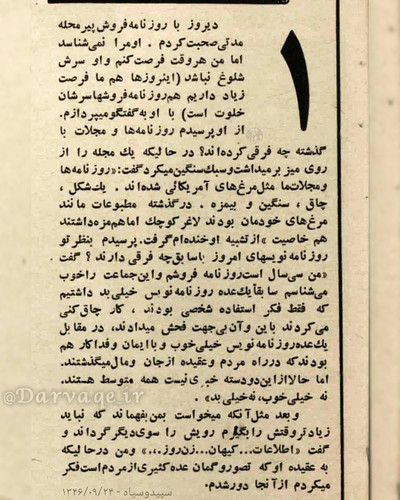 ۱
دیروز با روزنامه‌فروش پیر محله
مدتی صحبت کردم . او مرا نمی‌شناسد
اما من هر وقت فرصت کنم واو سرش
شلوغ نباشد (اینروزها هم ما فرصت
زیاد داریم هم روزنامه فروشها سرشان
خلوت است) با او به گفتگو میپردازم.
از او پرسیدم روزنامه‌ها و مجلات با
گذشته چه فرقی کرده‌اند؟ در حالیکه یك مجله را از
روی میز برمیداشت و سبك سنگین میکرد گفت: «روزنامه‌ها
و مجلات ما مثل مرغ‌های آمریکائی شده‌اند . یك شکل ،
چاق ، سنگین و بیمزه . در گذشته مطبوعات ما مانند
مرغ‌های خودمان بودند لاغر کوچك اما هم مزه داشتند
هم خاصیت» از تشبیه او خنده‌ام گرفت. پرسیدم بنظر تو
روزنامه نویسهای امروز با سابق چه فرقی دارند ؟ گفت
«من سی سال است روزنامه فروشم و این جماعت را خوب
می‌شناسم سابقا یك عده روزنامه نویس خیلی بد داشتیم
که فقط فکر استفاده شخصی بودند ، کار چاق کنی
می‌کردند باین و آن بی‌جهت فحش میدادند، در مقابل
یك عده روزنامه نویس خیلی خوب و با ایمان و فداکار هم
بودند که در راه مردم و عقیده از جان و مال میگذشتند.
اما حالا از این دو دسته خبری نیست همه متوسط هستند.
نه خیلی خوب، نه خیلی بد» .
و بعد مثل آنکه میخواست بمن بفهماند که نباید
زیاد تر وقتش را بگیرم رویش را سوی دیگر گرداند و
گفت «اطلاعات... کیهان... زن روز...» و من در حالیکه
به عقیده او که تصور و گمان عده کثیری از مردم است فکر
میکردم از آنجا دور شدم.
@Darvage.ir
سپید و سیاه - ۱۳۴۶/۰۹/۲۴